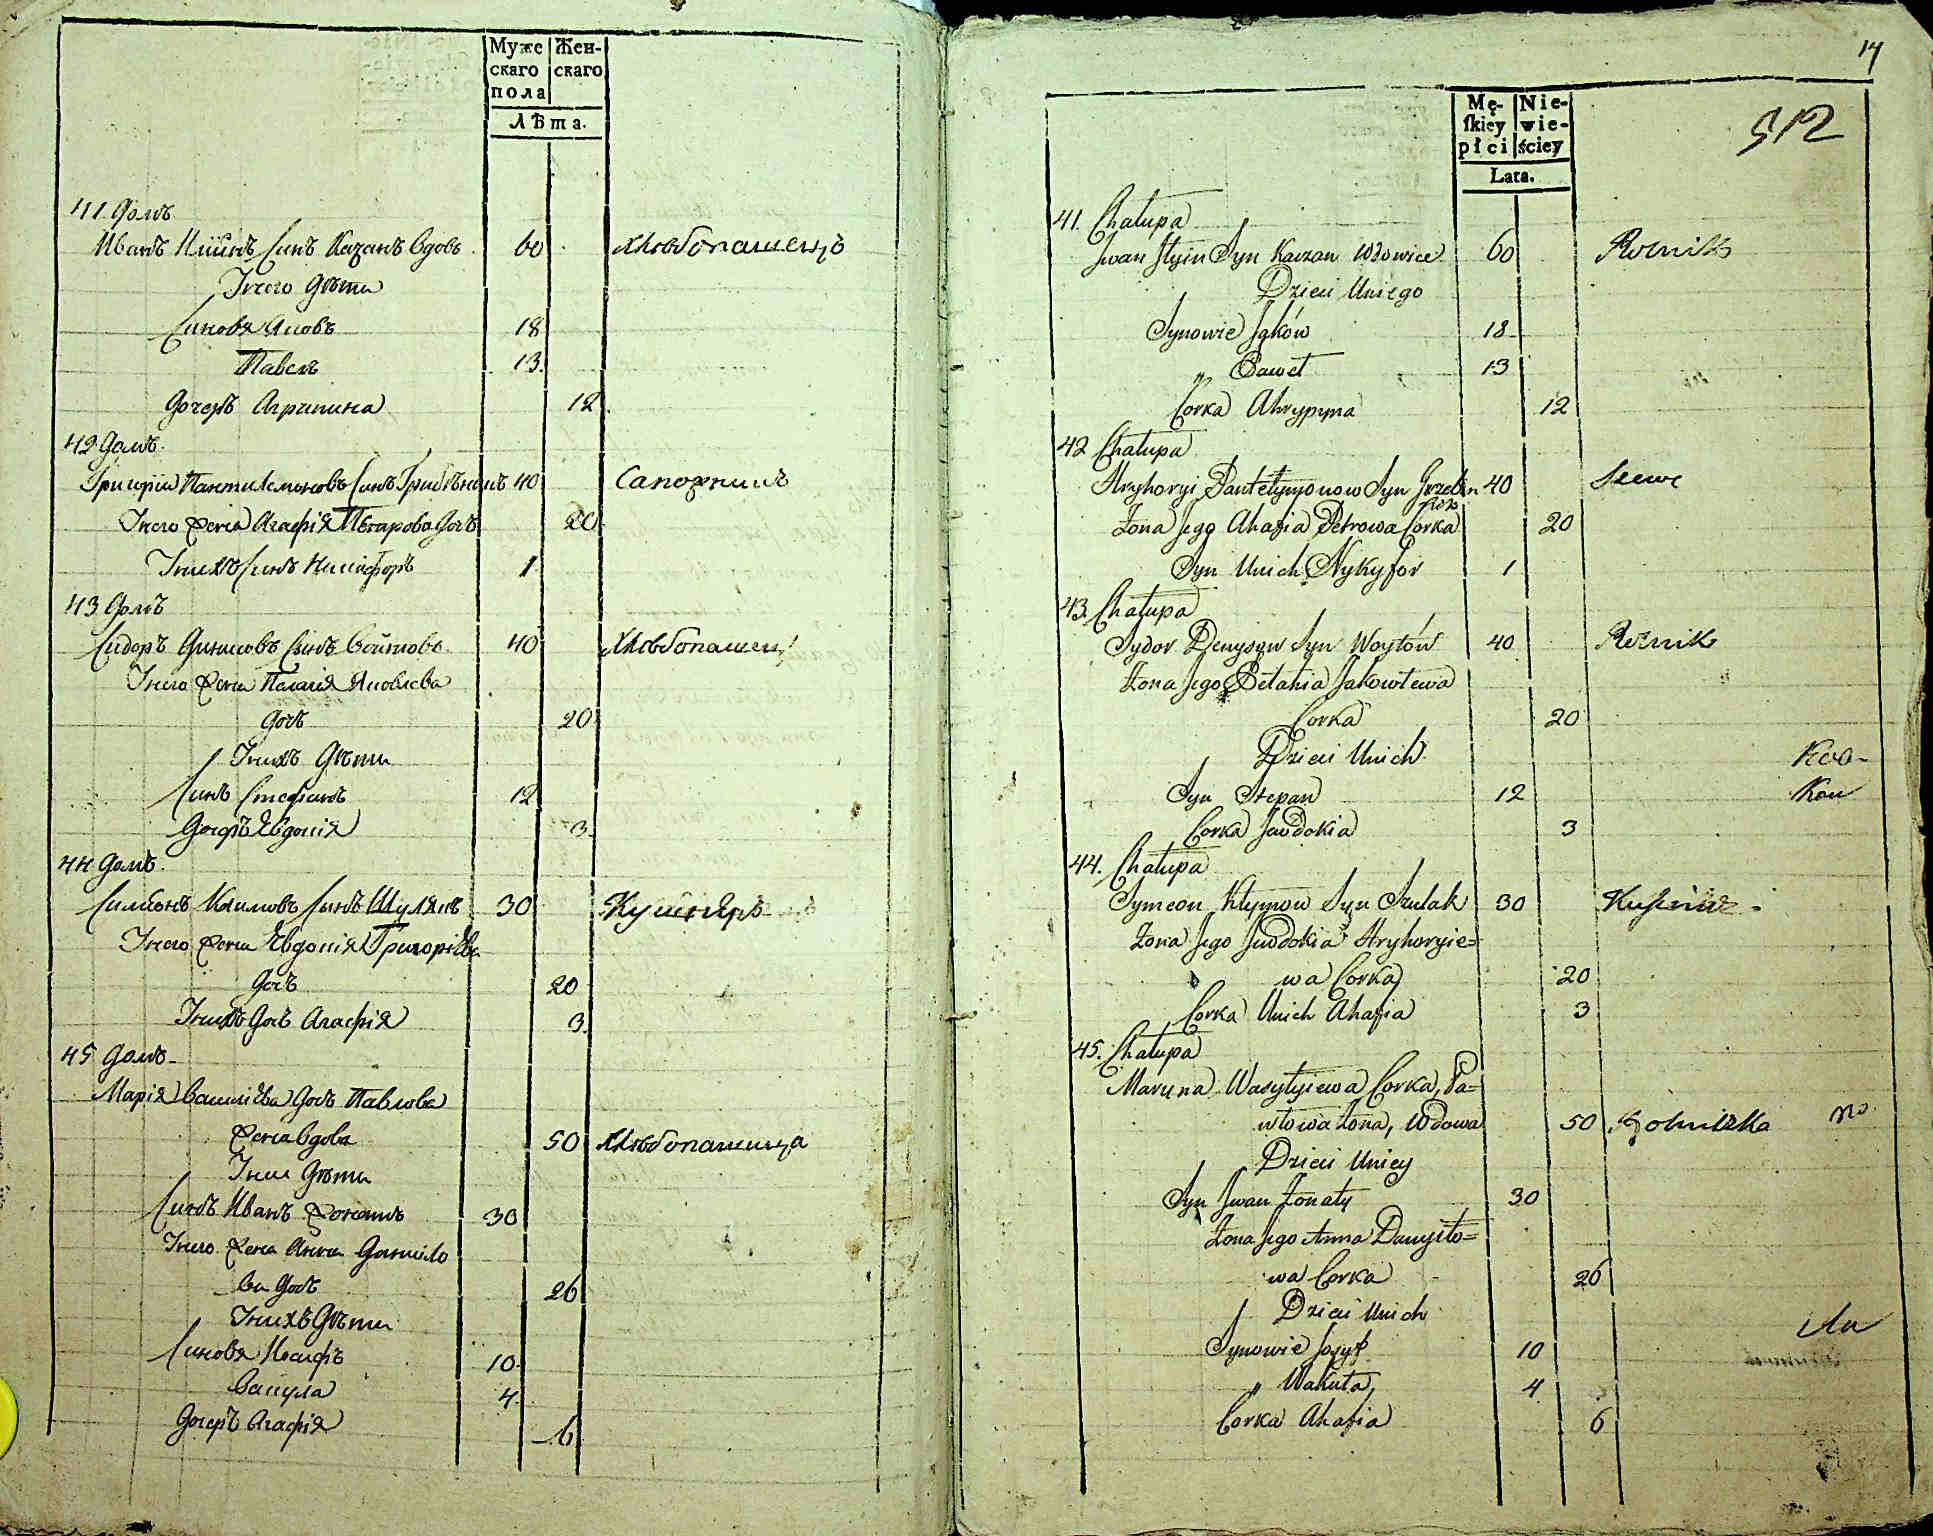 Муже
скаго
пола
Жен-
скаго
лѣта.
41 Домъ
Иванъ Илiинъ Синъ Казанъ вдовъ 60 Хлѣбопашецъ
У него Дѣти
Синовя Яковъ 18
Павелъ 13
Дочеръ Агрипина 12
42 Домъ
Григорiи Пантилемоновъ Синъ 40 Сапожникъ
У него жена Агафiя Петрова Дочъ 20
У нихъ Синъ Никифоръ 1
43 Домъ
Сидоръ Динисовъ Синъ Войтовъ 40 Хлѣбопашец
У него жена Палагiя Яковлева
Дочъ 20
У нихъ Дѣти
Синъ Стефанъ 12
Дочеръ Явдокiя 3
44 Домъ
Симионъ Климовъ Синъ Шулякъ 30 Кушнѣръ
У него жена Явдокiя Григорiева
Дочъ 20
У нихъ Дочъ Агафiя 3
45 Домъ
Марiя Василiева Дочъ Павлова
жена вдова 50 Хлѣбопашица
У неи Дѣти
Синъ Иванъ жонатъ 30
У него жена Анна Данило
ва Дочъ 26
У нихъ Дѣти
Синовя Иосифъ 10
Вакула 4
Дочеръ Агафiя 6
14
Mę-
skiey
płci
Nie-
wie-
ściey
Lata.
512
41. Chałupa
Jwan Jlyin Syn Kazan Wdowiec 60 Rolnik
Dzieci Uniego
Synowie Jaków 18
" Paweł 13
Corka Ahrypyna 12
42 Chałupa
Hryhoryi Pantełymonow Syn 40 Szewc
Żona Jego Ahafia Petrowa Corka 20
Syn Unich Nykyfor 1
43. Chałupa
Sydor Denysow Syn Woytów 40 Rolnik
Żona Jego Pełahia Jakowlewa
Corka 20
Dzieci Unich
Syn Stepan 12
Corka Jawdokia 3
44. Chałupa
Symeon Kłymow Syn Szulak 30 Kusznierz
Żona Jego Jewdokia Hryhoryie=
wa Corka 20
Corka Unich Ahafia 3
45. Chałupa
Maryna Wasyłyiewa Corka, Pa=
włowa Żona, Wdowa 50 Rolniczka
Dzieci Uniey
Syn Jwan Żonaty 30
Żona Jego Anna Danyło=
wa Corka 26
Dzieci Unich
Synowie Jozyf 10
" Wakuła, 4
Corka Ahafia 6